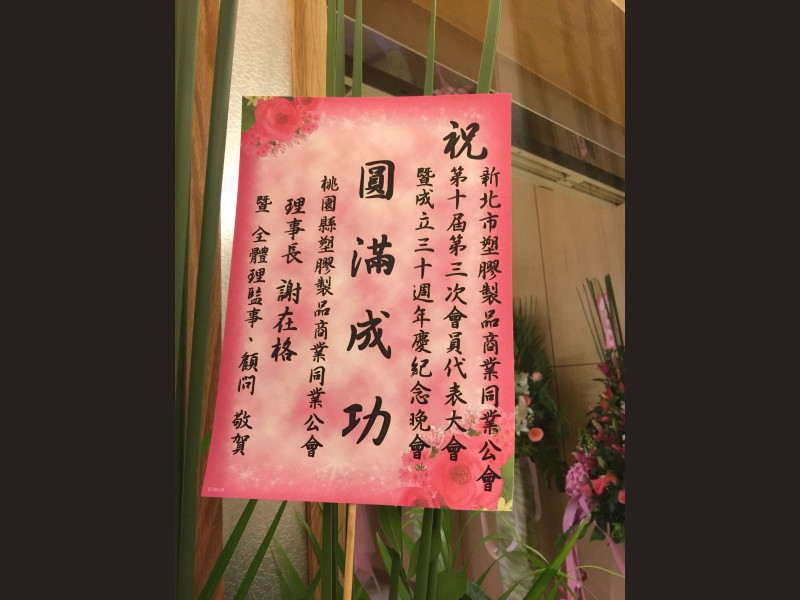 祝
新北市塑膠製品商業同業公會
第十屆第三次會員代表大會
暨成立三十週年慶紀念晚會
圓滿成功
桃園縣塑膠製品商業同業公會
理事長 謝在格
暨 全體理監事、顧問 敬賀